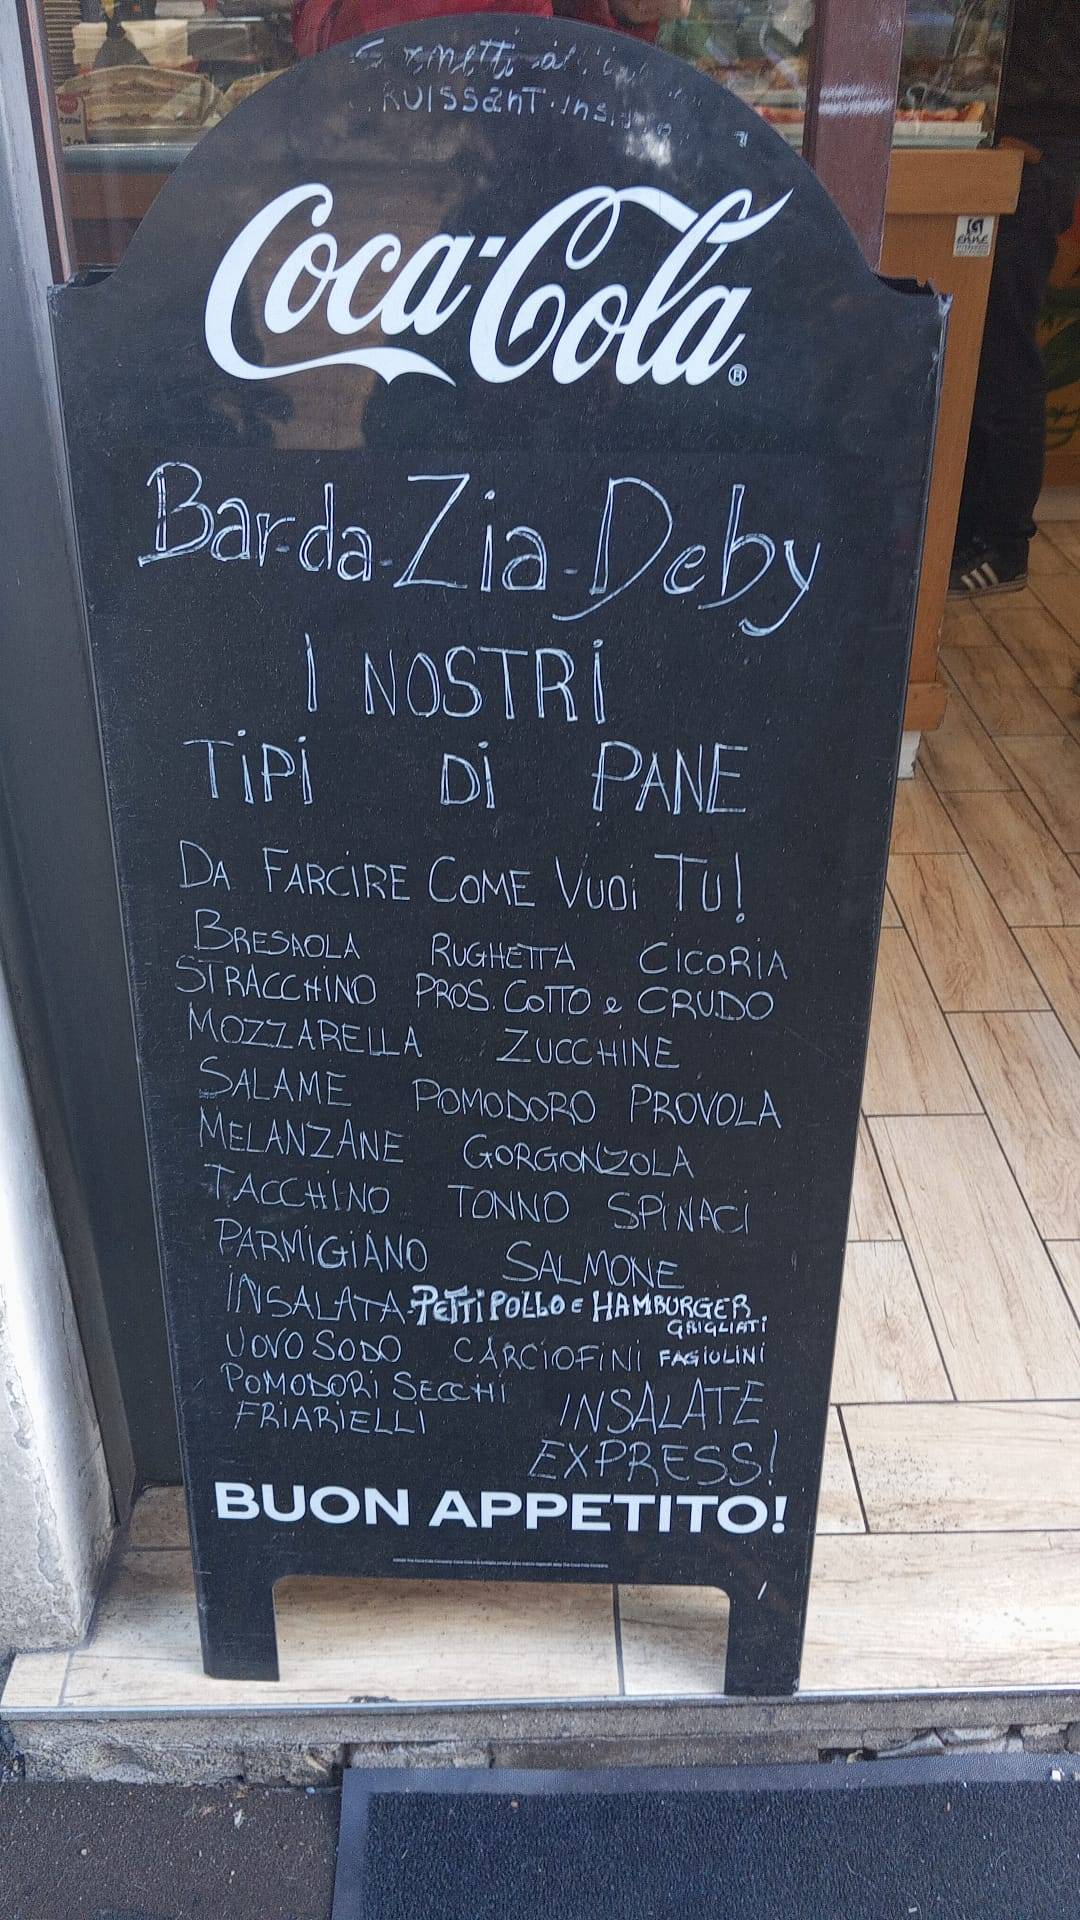 Coca-Cola
Bar-da-Zia-Deby
I NOSTRI
TIPI DI PANE
DA FARCIRE COME VUOI TU!
BRESAOLA RUGHETTA CICORIA
STRACCHINO PROS. COTTO e CRUDO
MOZZARELLA ZUCCHINE
SALAME POMODORO PROVOLA
MELANZANE GORGONZOLA
TACCHINO TONNO SPINACI
PARMIGIANO SALMONE
INSALATA-PETTI POLLO E HAMBURGER
GRIGLIATI
UOVO SODO CARCIOFINI FAGIOLINI
POMODORI SECCHI INSALATE
FRIARIELLI
EXPRESS!
BUON APPETITO!